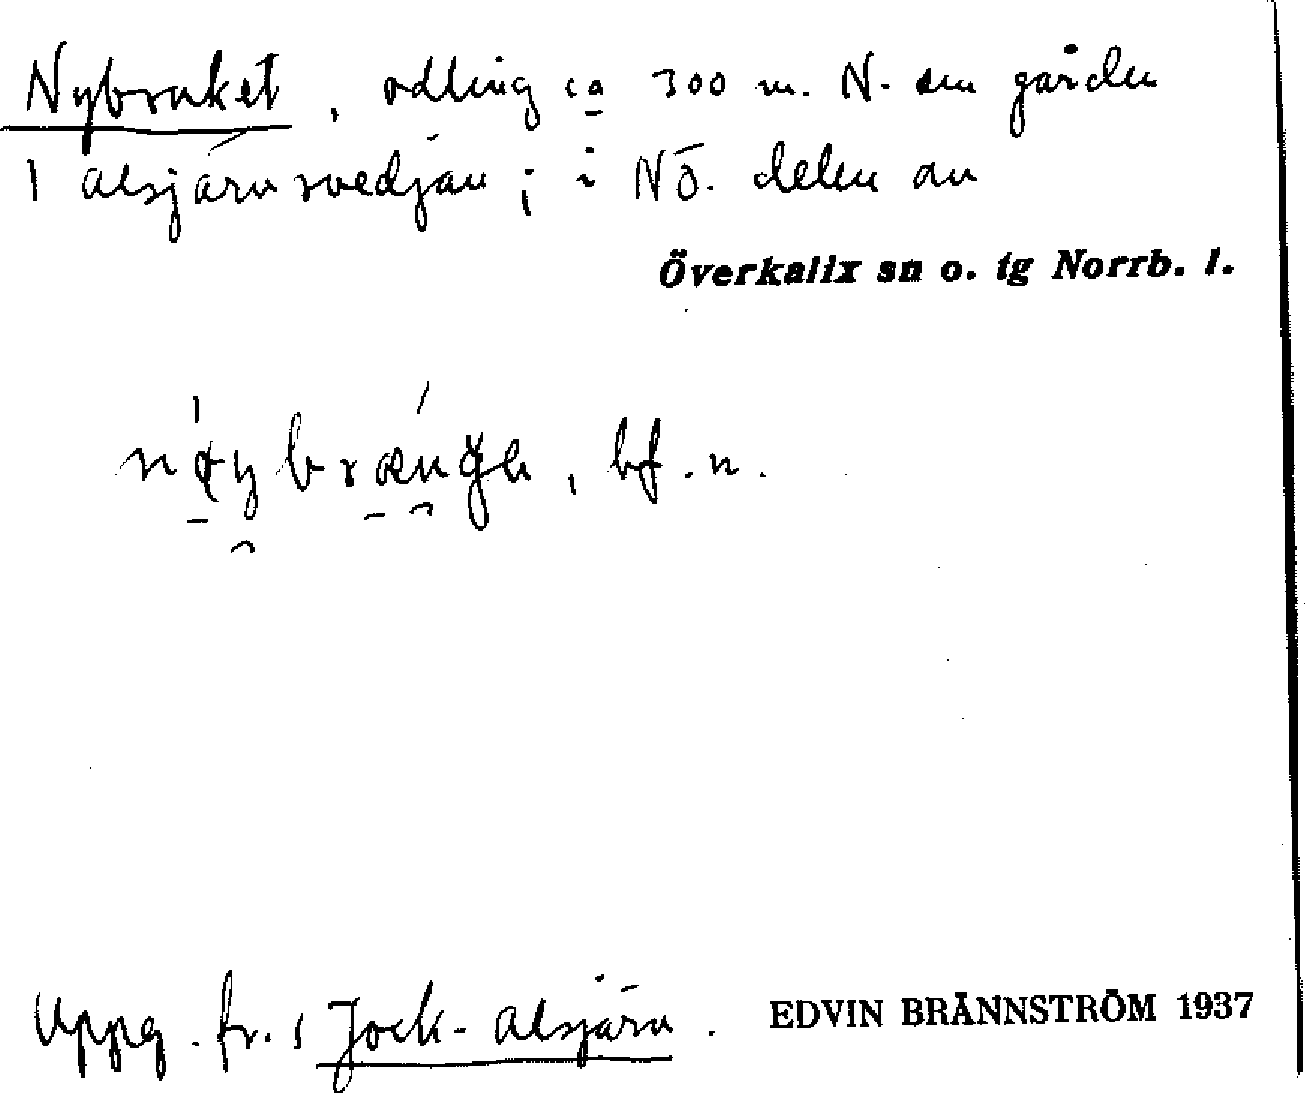 Nybruket, odling ca 300 m. N. om gården
i Alsjärvsvedjan; i NÖ. delen av
Överkalix sn o. tg Norrb. l.
bf. n.
Uppg. fr. Jock-Alsjärv.
EDVIN BRÄNNSTRÖM 1937